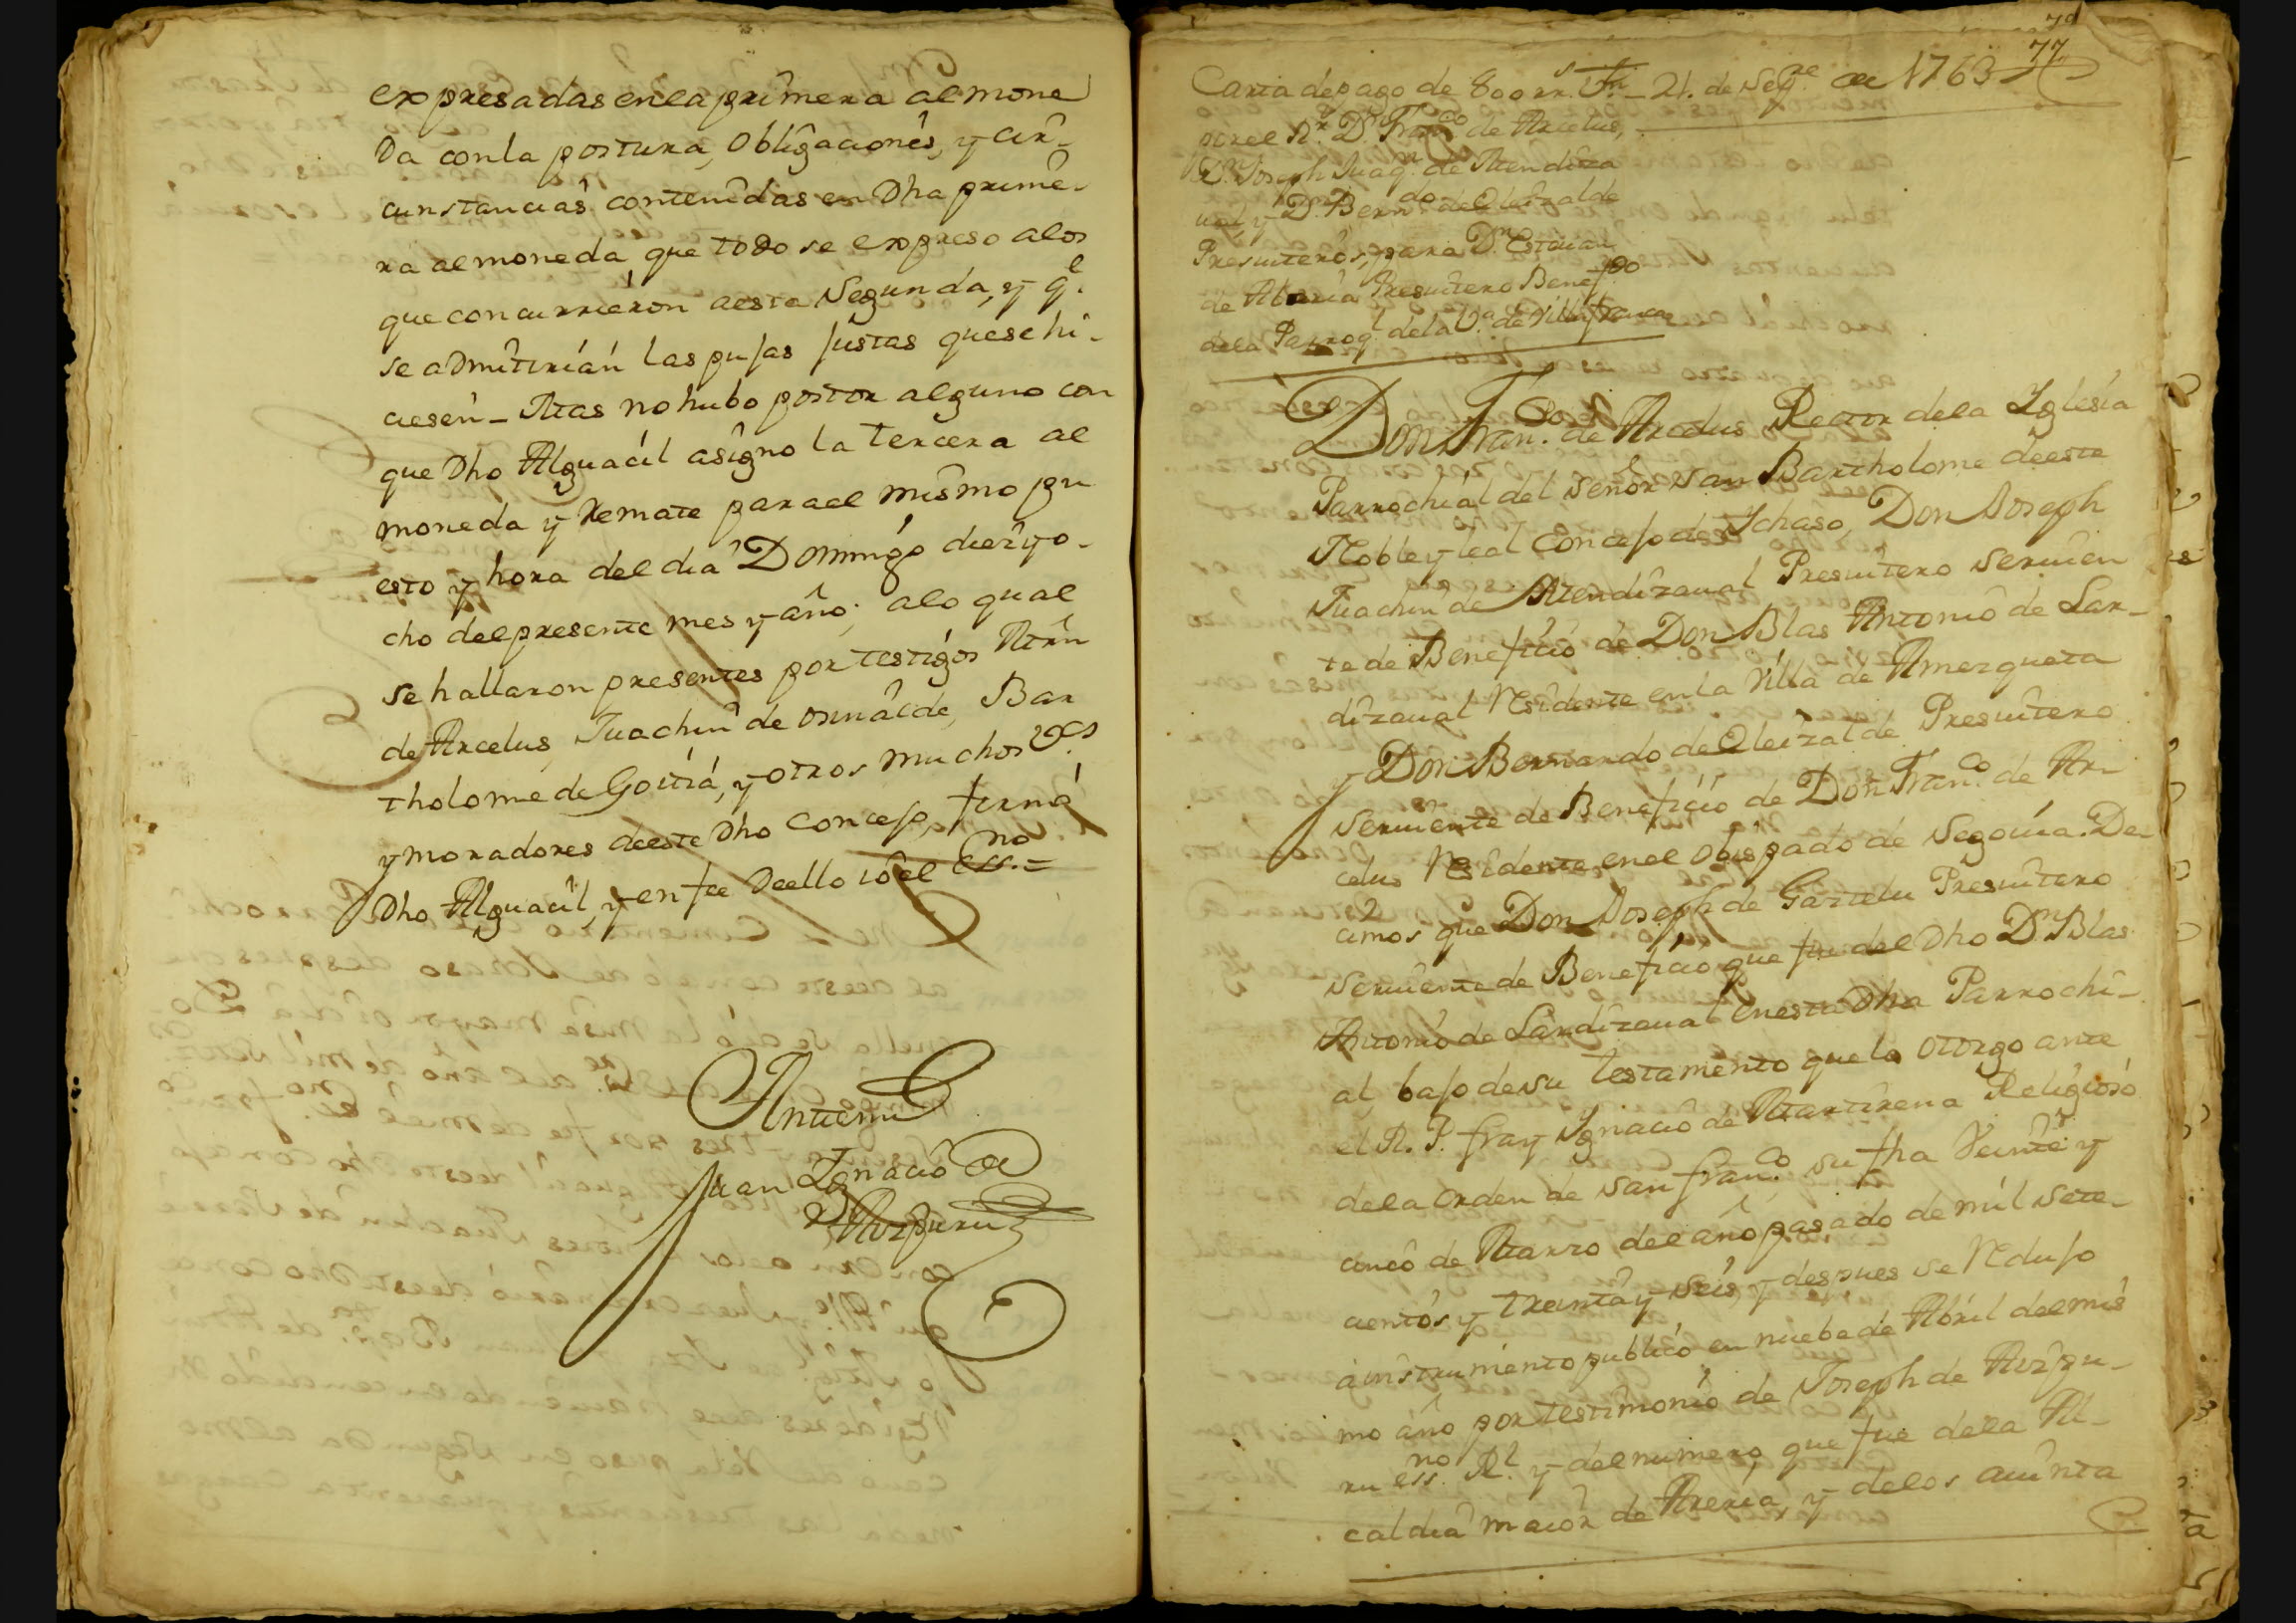 expresadas en la primera almone
da con la postura, obligaciones, y cir-
cunstancias contenidas en dha prime-
ra almoneda, que todo se expreso alos
que concurrieron aesta Segunda, y q.e
se admitirian las pujas justas quese hi-
ciesen - Mas no hubo postor alguno con
que dho Alguacil asigno la tercera al
moneda y Remate para el mismo pu
esto y hora del dia Domingo diez y o-
cho del presente mes y año; alo qual
se hallaron presentes por testigos Mrn
de Arcelus, Juachin de Osinalde, Bar
tholome de Goitia, y otros muchos vos
y moradores deeste dho Concejo, firmó
dho Alguacil, y en fee deello io el ess.no =
Antemi
Juan Ignacio de
Aizpuru
77
Carta de pago de 800 rr.s Vn_ 21. de Sep.re de 1763
por el Sr. Dn Fran.co de Arcelus,
Dn. Joseph Juaqn. de Mendiza
ual, y Dn Bern.do de Oleizalde
Presuiteros, para Dn Estauan
de Abaria Presuitero Benef.do
dela Parroql. dela Va. de Villafranca
Don Fran.co de Arcelus Rector dela Iglesia
Parrochial del Señor San Bartholome deeste
Noble y leal Concejo de Ichaso, Don Joseph
Juachin de Mendizaual Presuitero seruien
te de Beneficio de Don Blas Antonio de Lar-
dizaual Residente en la Villa de Amezqueta
y Don Bernardo de Oleizalde Presuitero
seruiente de Beneficio de Don Fran.co de Ar-
celus Residente enel obispado de Segouia. De-
cimos que Don Joseph de Gaztelu Presuitero
seruiente de Beneficio que fue del dho Dn Blas
Antonio de Lardizaual enesta dha Parrochi-
al, bajo de su testamento que lo otorgo ante
el R. P. fray Ignacio de Martirena Religioso
dela orden de san fran.co su fha Veinte y
cinco de Marzo del año pasado de mil sete-
cientos y treinta y seis, y despues se Redujo
a instrumento publico en nuebe de Abril del mis
mo año por testimonio de Joseph de Aizpu-
ru ess.no Rl. y del numero, que fue dela Al-
caldia maior de Areria, y delos auinta